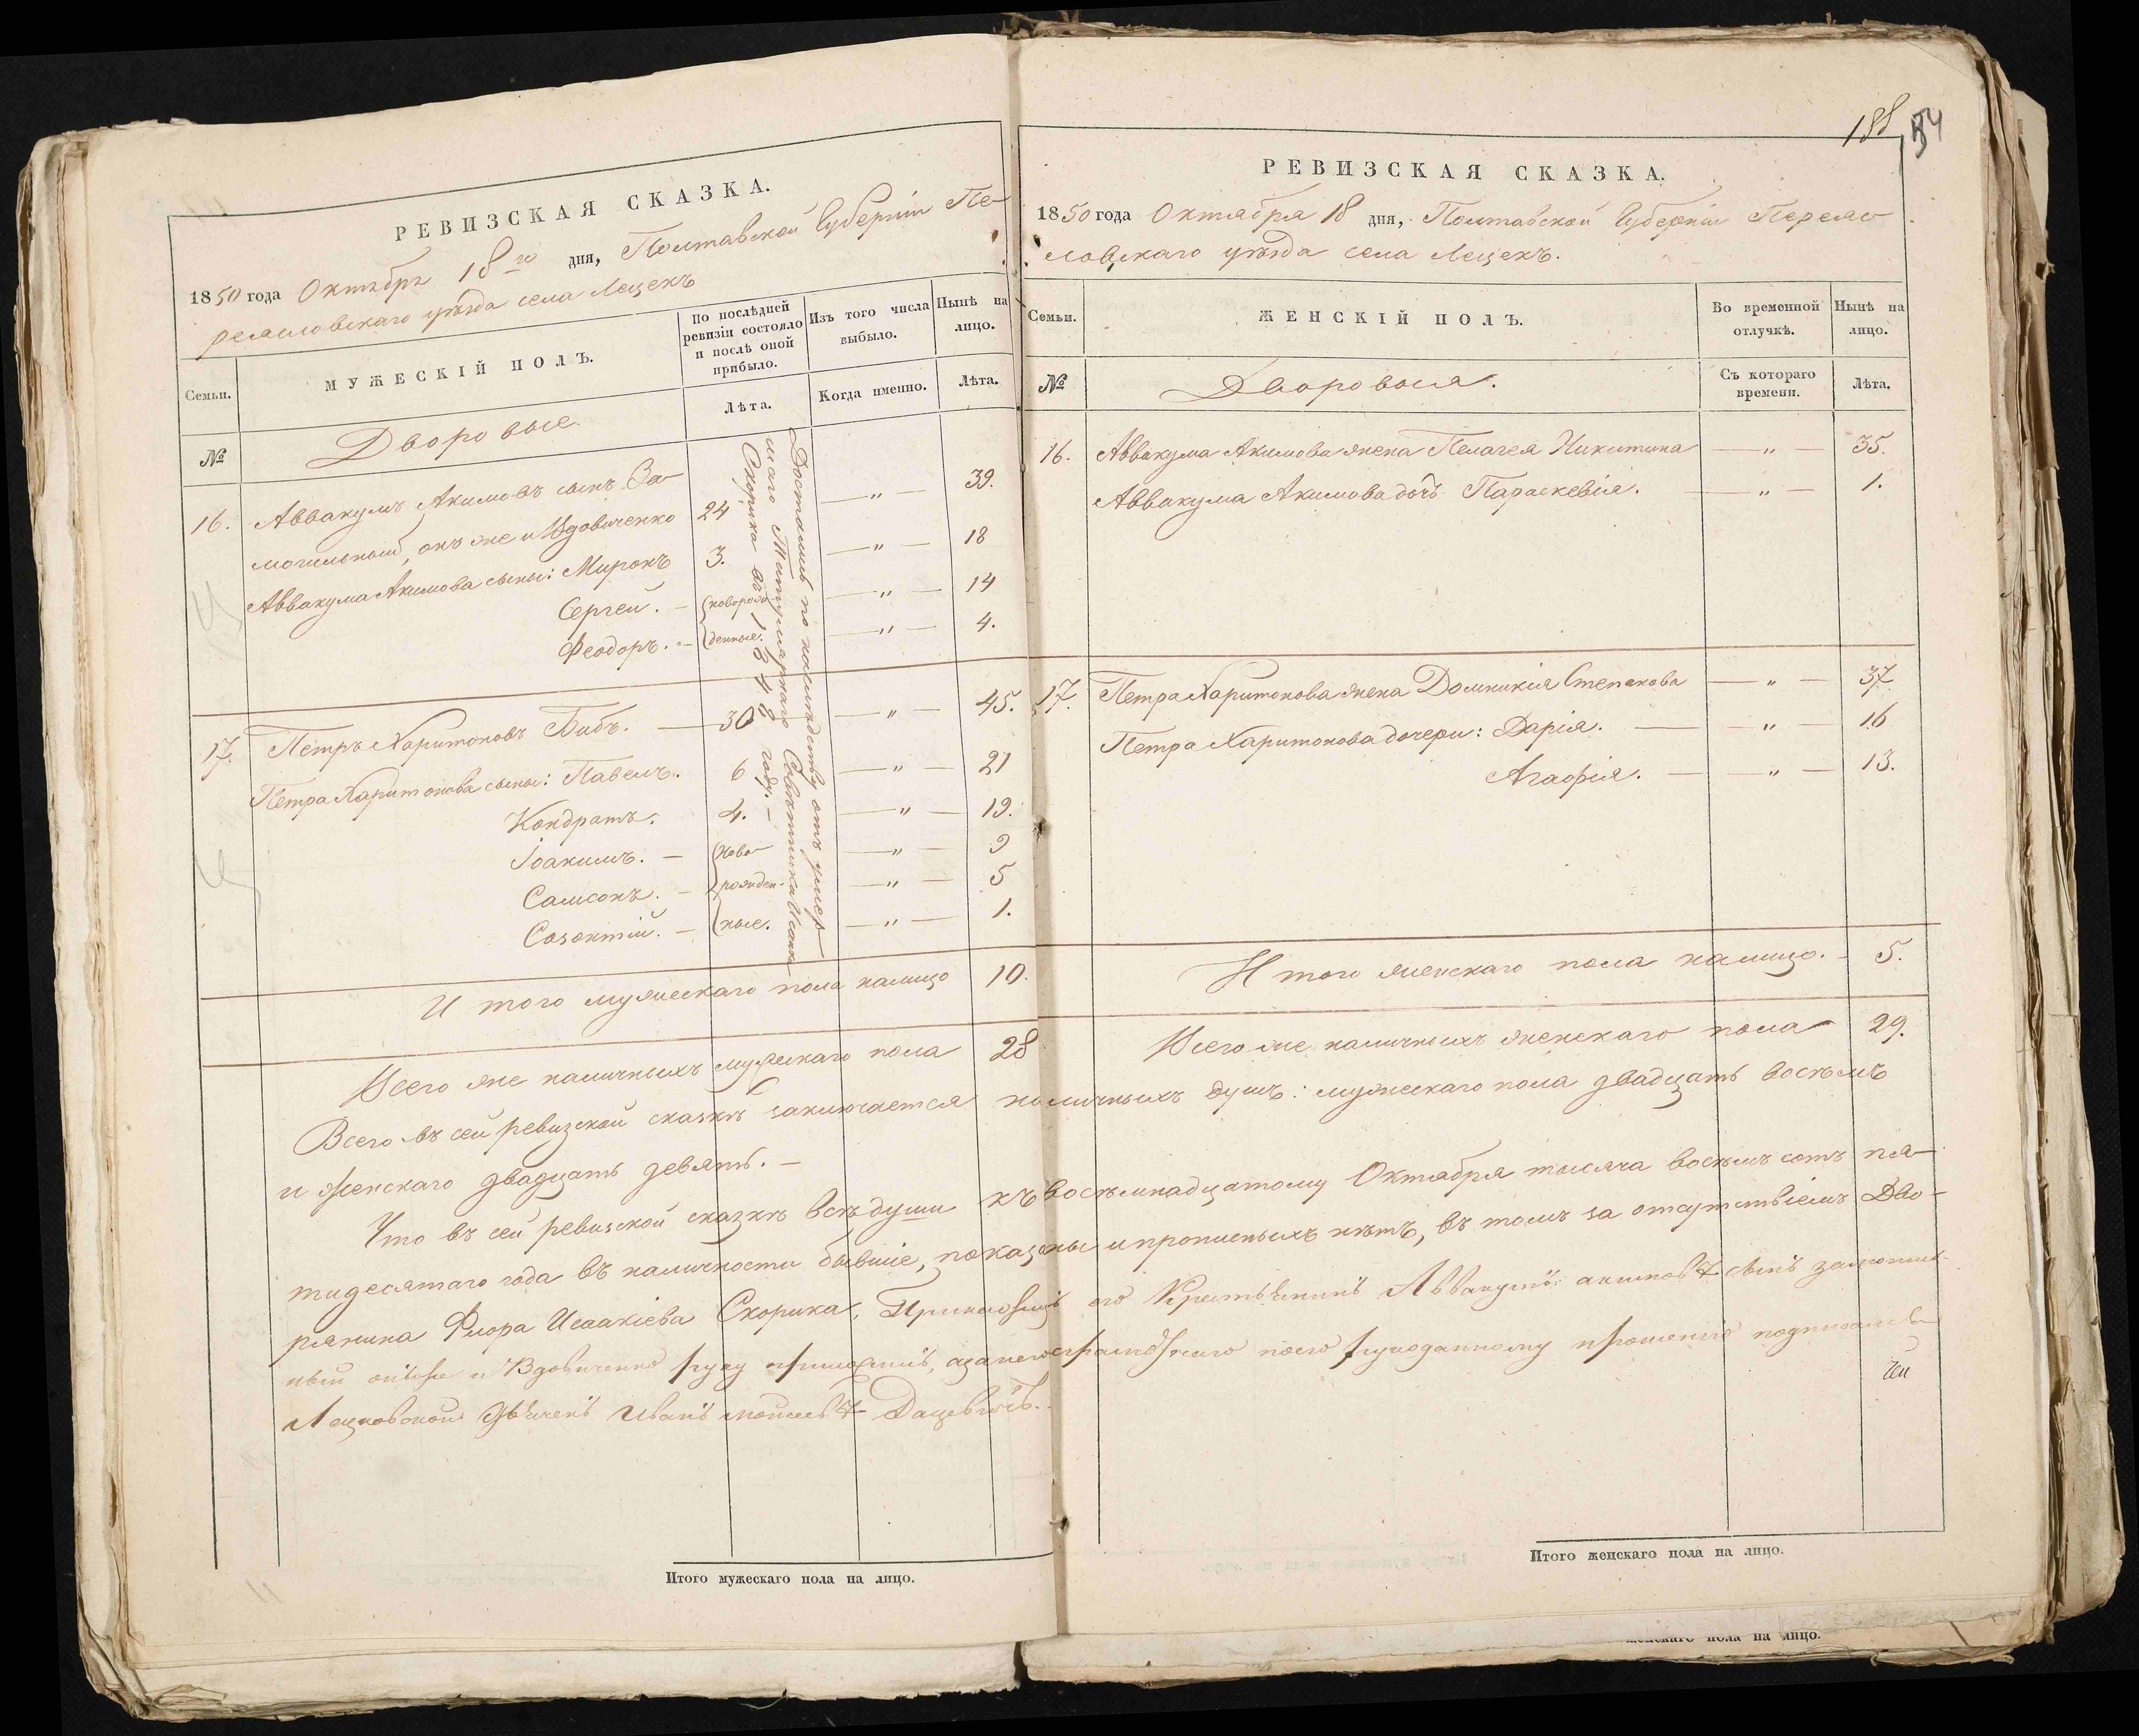 РЕВИЗСКАЯ СКАЗКА.
1850 года Октября 18го дня, Полтавской Губерніи Пе-
реяславскаго уѣзда села Лецекъ
Семьи.
МУЖЕСКІЙ ПОЛЪ.
По послѣдней ревизіи состояло и послѣ оной прибыло.
Изъ того числа выбыло.
Нынѣ на лицо.
№
Лѣта.
Когда именно.
Лѣта.
Дворовые.
16. Аввакумъ Акимовъ сынъ За-
могильный, онъ же и Вдовиченко 24 — „ — 39.
Аввакума Акимова сыны: Миронъ 3. — „ — 18
Сергей. — новорож — „ — 14
Феодоръ. — денные. — „ — 4.
Достались по наслѣдству отъ умер-
шаго Титулярнаго Совѣтника Исаака
Скорика въ 1848 году. —
17. Петръ Харитоновъ Бибъ. — 30 — „ — 45.
Петра Харитонова сыны: Павелъ. 6 — „ — 21
Кондратъ. 4. — „ — 19.
Іоакимъ. — Ново- — „ — 9
Самсонъ. — рожден- — „ — 5
Созонтій. — ные. — „ — 1.
И того мужескаго пола налицо 10.
Всего же наличныхъ мужескаго пола 28
Итого мужескаго пола на лицо.
188 54
РЕВИЗСКАЯ СКАЗКА.
1850 года Октября 18 дня, Полтавской Губерніи Переяс-
лавскаго уѣзда села Лецекъ.
Семьи.
ЖЕНСКІЙ ПОЛЪ.
Во временной отлучкѣ.
Нынѣ на лицо.
№
Съ котораго времени.
Лѣта.
Дворовыя.
16. Аввакума Акимова жена Пелагея Никитина — „ — 35.
Аввакума Акимова дочь Параскевія. — „ — 1.
17. Петра Харитонова жена Домникія Степанова — „ — 37
Петра Харитонова дочери: Дарія. — „ — 16
Агафія. — „ — 13.
И того женскаго пола налицо. 5.
Всего же наличныхъ женскаго пола 29.
Всего въ сей ревизской сказкѣ заключается наличныхъ душъ: мужескаго пола двадцать восемь
и женскаго двадцать девять. —
Что въ сей ревизской сказкѣ всѣ души къ восемнадцатому Октября тысяча восемь сотъ пя-
тидесятаго года въ наличности бывшіе, показаны и прописныхъ нѣтъ, въ томъ за отсутствіемъ Дво-
рянина Флора Исаакіева Скорика, Прикащикъ его Крестьянинъ Аввакумъ акимовъ сынъ замогиль-
ный онъ же и Вдовиченко руку приложилъ, а за него неграмотнаго по его рукоданному прошенію подписался
Лецковской Дьячекъ Иванъ
Итого женскаго пола на лицо.
женскаго пола на лицо.